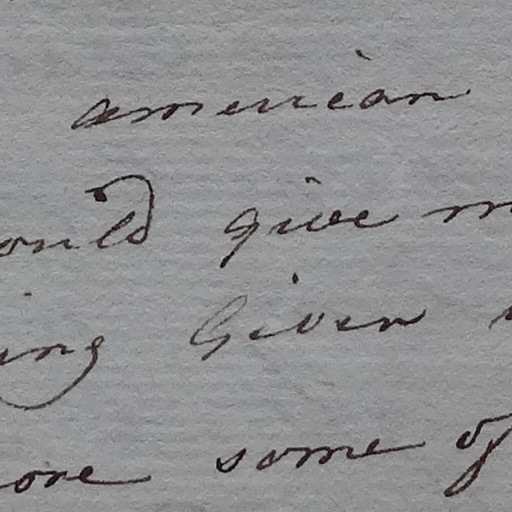 american
ould give m
ing Given
ore some of